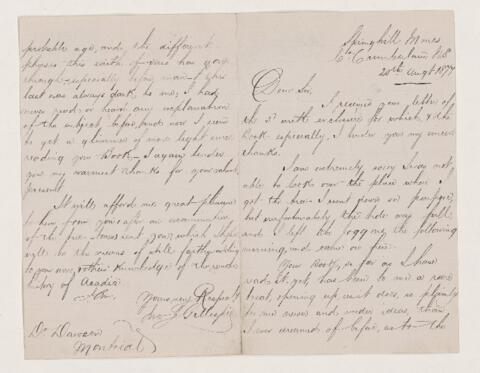 Springhill Mines
Co Cumberland N.S.
20th Augt 1877
Dear Sir,
I received your letter of
the 3d with enclosure for which, & the
Book especially, I tender you my sincere
thanks.
I am extremely sorry I was not
able to look over the place where I
got the I went down on purpose,
but unfortunately the hole was full
and I left the Joggins the following
morning, and came on here.
Your Book, so far as I have
read it, has been to me a rare
treat, opening up vast ideas, so plainly
to me new and wider ideas, than
I ever dreamed of before, as to the
probable age, and, the different
phases this earth of ours has gone
through especially before man. This
last was always dark to me, I had
never read, or heard any explanation
of the subject before, but now I seem
to get a glimpse of more light since
reading your Book. I again tender
you my warmest thanks for your valued
present
It will afford me great pleasure
to hear from you after an examination
of the few stones sent you, which I hope
will be the means of still further adding
to your own, & others knowledge of the wonderful
history of Acadia
I Am,
Yours very Respectfully
Gillespie
Dr Dawson
Montreal